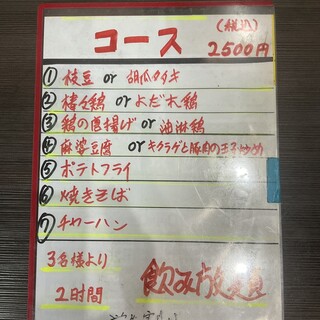 コース
(税込)
2500円
① 枝豆 or 胡瓜タタキ
② 棒々鶏 or よだれ鶏
③ 鶏の唐揚げ or 油淋鶏
④ 麻婆豆腐 or キクラゲと豚肉の玉子炒め
⑤ ポテトフライ
⑥ 焼きそば
⑦ チャーハン
3名様より
2時間
飲み放題